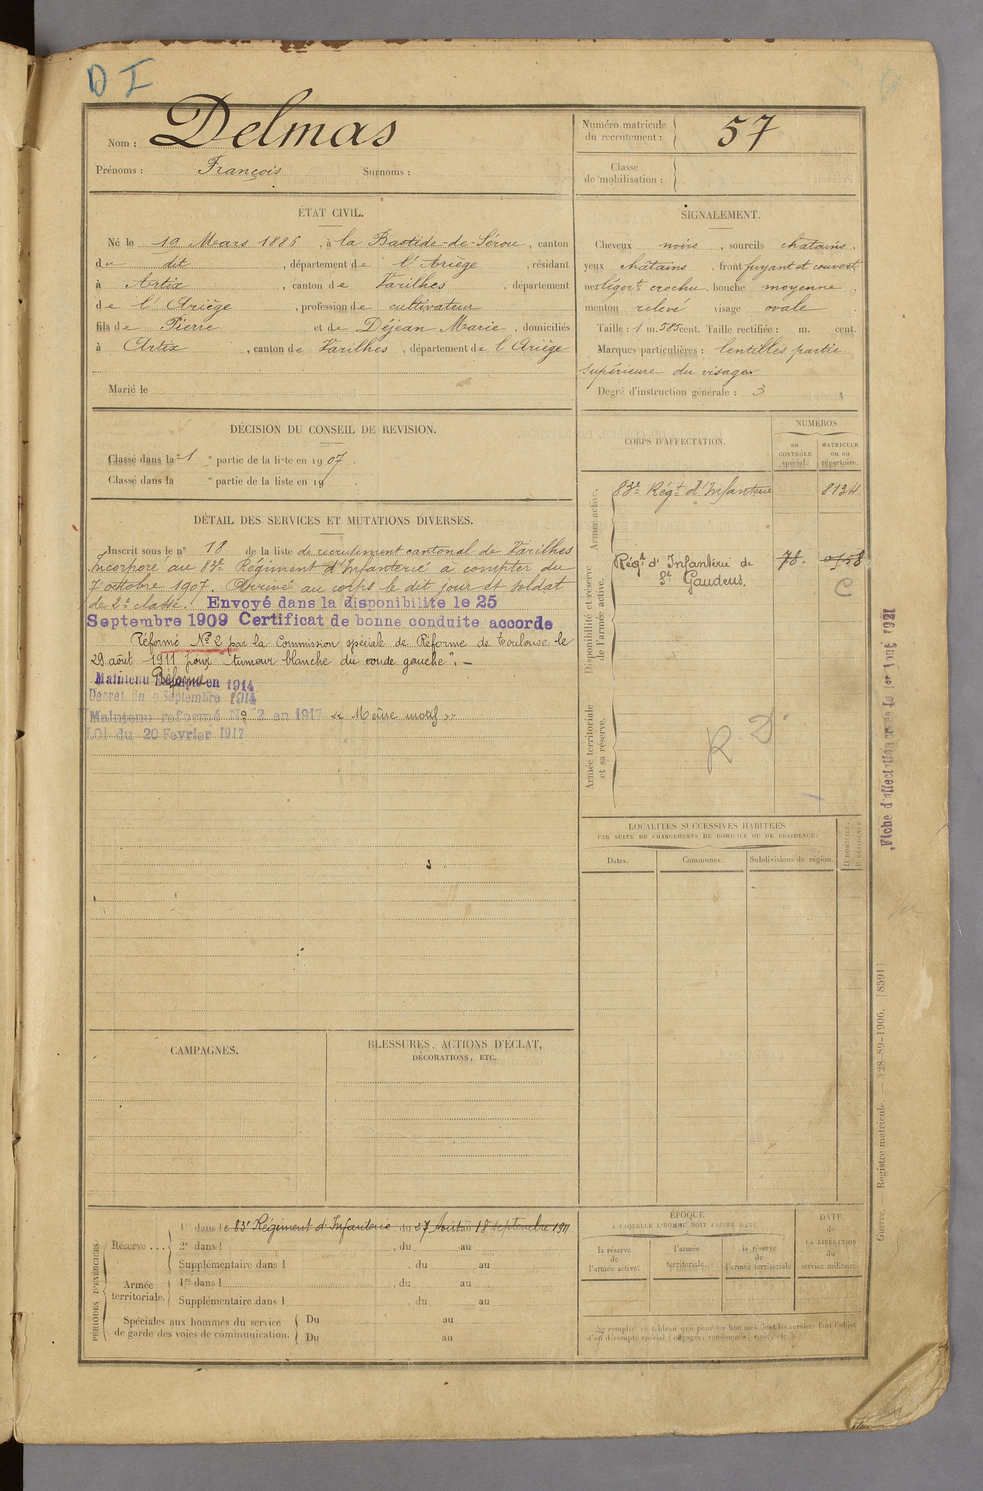 D I
Nom : Delmas
Prénoms : François Surnoms :
Numéro matricule
du recrutement : 57
Classe
de mobilisation :
ÉTAT CIVIL.
Né le 19 Mars 1886, à la Bastide-de-Sérou, canton
du dit, département de l'Ariège, résidant
à Artix, canton de Varilhes, département
de l'Ariège, profession de cultivateur
fils de Pierre et de Déjean Marie, domiciliés
à Artix, canton de Varilhes, département de l'Ariège
Marié le
SIGNALEMENT.
Cheveux noirs, sourcils chatains,
yeux châtains, front fuyant et couvert,
nez légert crochu, bouche moyenne,
menton relevé visage ovale.
Taille : 1 m. 585 cent. Taille rectifiée : m. cent.
Marques particulières : lentilles partie
supérieure du visage.
Degré d'instruction générale : 3
DÉCISION DU CONSEIL DE REVISION.
Classé dans la 1 e partie de la liste en 1907.
Classé dans la e partie de la liste en 19 .
DÉTAIL DES SERVICES ET MUTATIONS DIVERSES.
Inscrit sous le n° 18 de la liste de recrutement cantonal de Varilhes
Incorporé au 83e Régiment d'Infanterie à compter du
7 octobre 1907. Arrivé au corps le dit jour et soldat
de 2e classe. Envoyé dans la disponibilité le 25
Septembre 1909 Certificat de bonne conduite accorde
Réformé N° 2 par la Commission spéciale de Réforme de Toulouse le
29 août 1911 pour "tumeur blanche du coude gauche". —
Maintenu Réformé en 1914
Décret du 9 Septembre 1914
Maintenu reformé N° 2 en 1917 « Même motif »
LOI du 20 Fevrier 1917
CORPS D'AFFECTATION.
NUMÉROS
au
CONTRÔLE
spécial.
MATRICULE
ou au
répertoire.
Armée active.
83e Régt d'Infanterie 8134
Disponibilité et réserve
de l'armée active.
Régt d'Infanterie de
St Gaudens. 78.
C
Armée territoriale
et sa réserve.
R. D
LOCALITÉS SUCCESSIVES HABITÉES
PAR SUITE DE CHANGEMENTS DE DOMICILE OU DE RÉSIDENCE.
Dates. Communes. Subdivisions de région.
D DOMICILE.
R RÉSIDENCE
Fiche d'affectation
CAMPAGNES.
BLESSURES, ACTIONS D'ÉCLAT,
DÉCORATIONS, ETC.
PÉRIODES D'EXERCICES
Réserve ...
1re dans le 83e Régiment d'Infanterie du 27 Août au 18 septembre 1911
2e dans l , du au
Supplémentaire dans l , du au
Armée
territoriale.
1re dans l , du au
Supplémentaire dans l , du au
Spéciales aux hommes du service
de garde des voies de communication.
Du au
Du au
ÉPOQUE
À LAQUELLE L'HOMME DOIT PASSER DANS
la réserve
de
l'armée active.
l'armée
territoriale.
la réserve
de
l'armée territoriale
DATE
de
LA LIBÉRATION
du
service militaire.
Ne remplir ce tableau que pour les hommes dont les services font l'objet
d'un décompte spécial
Guerre. Registre matricule. 128-89-1906. [8591]